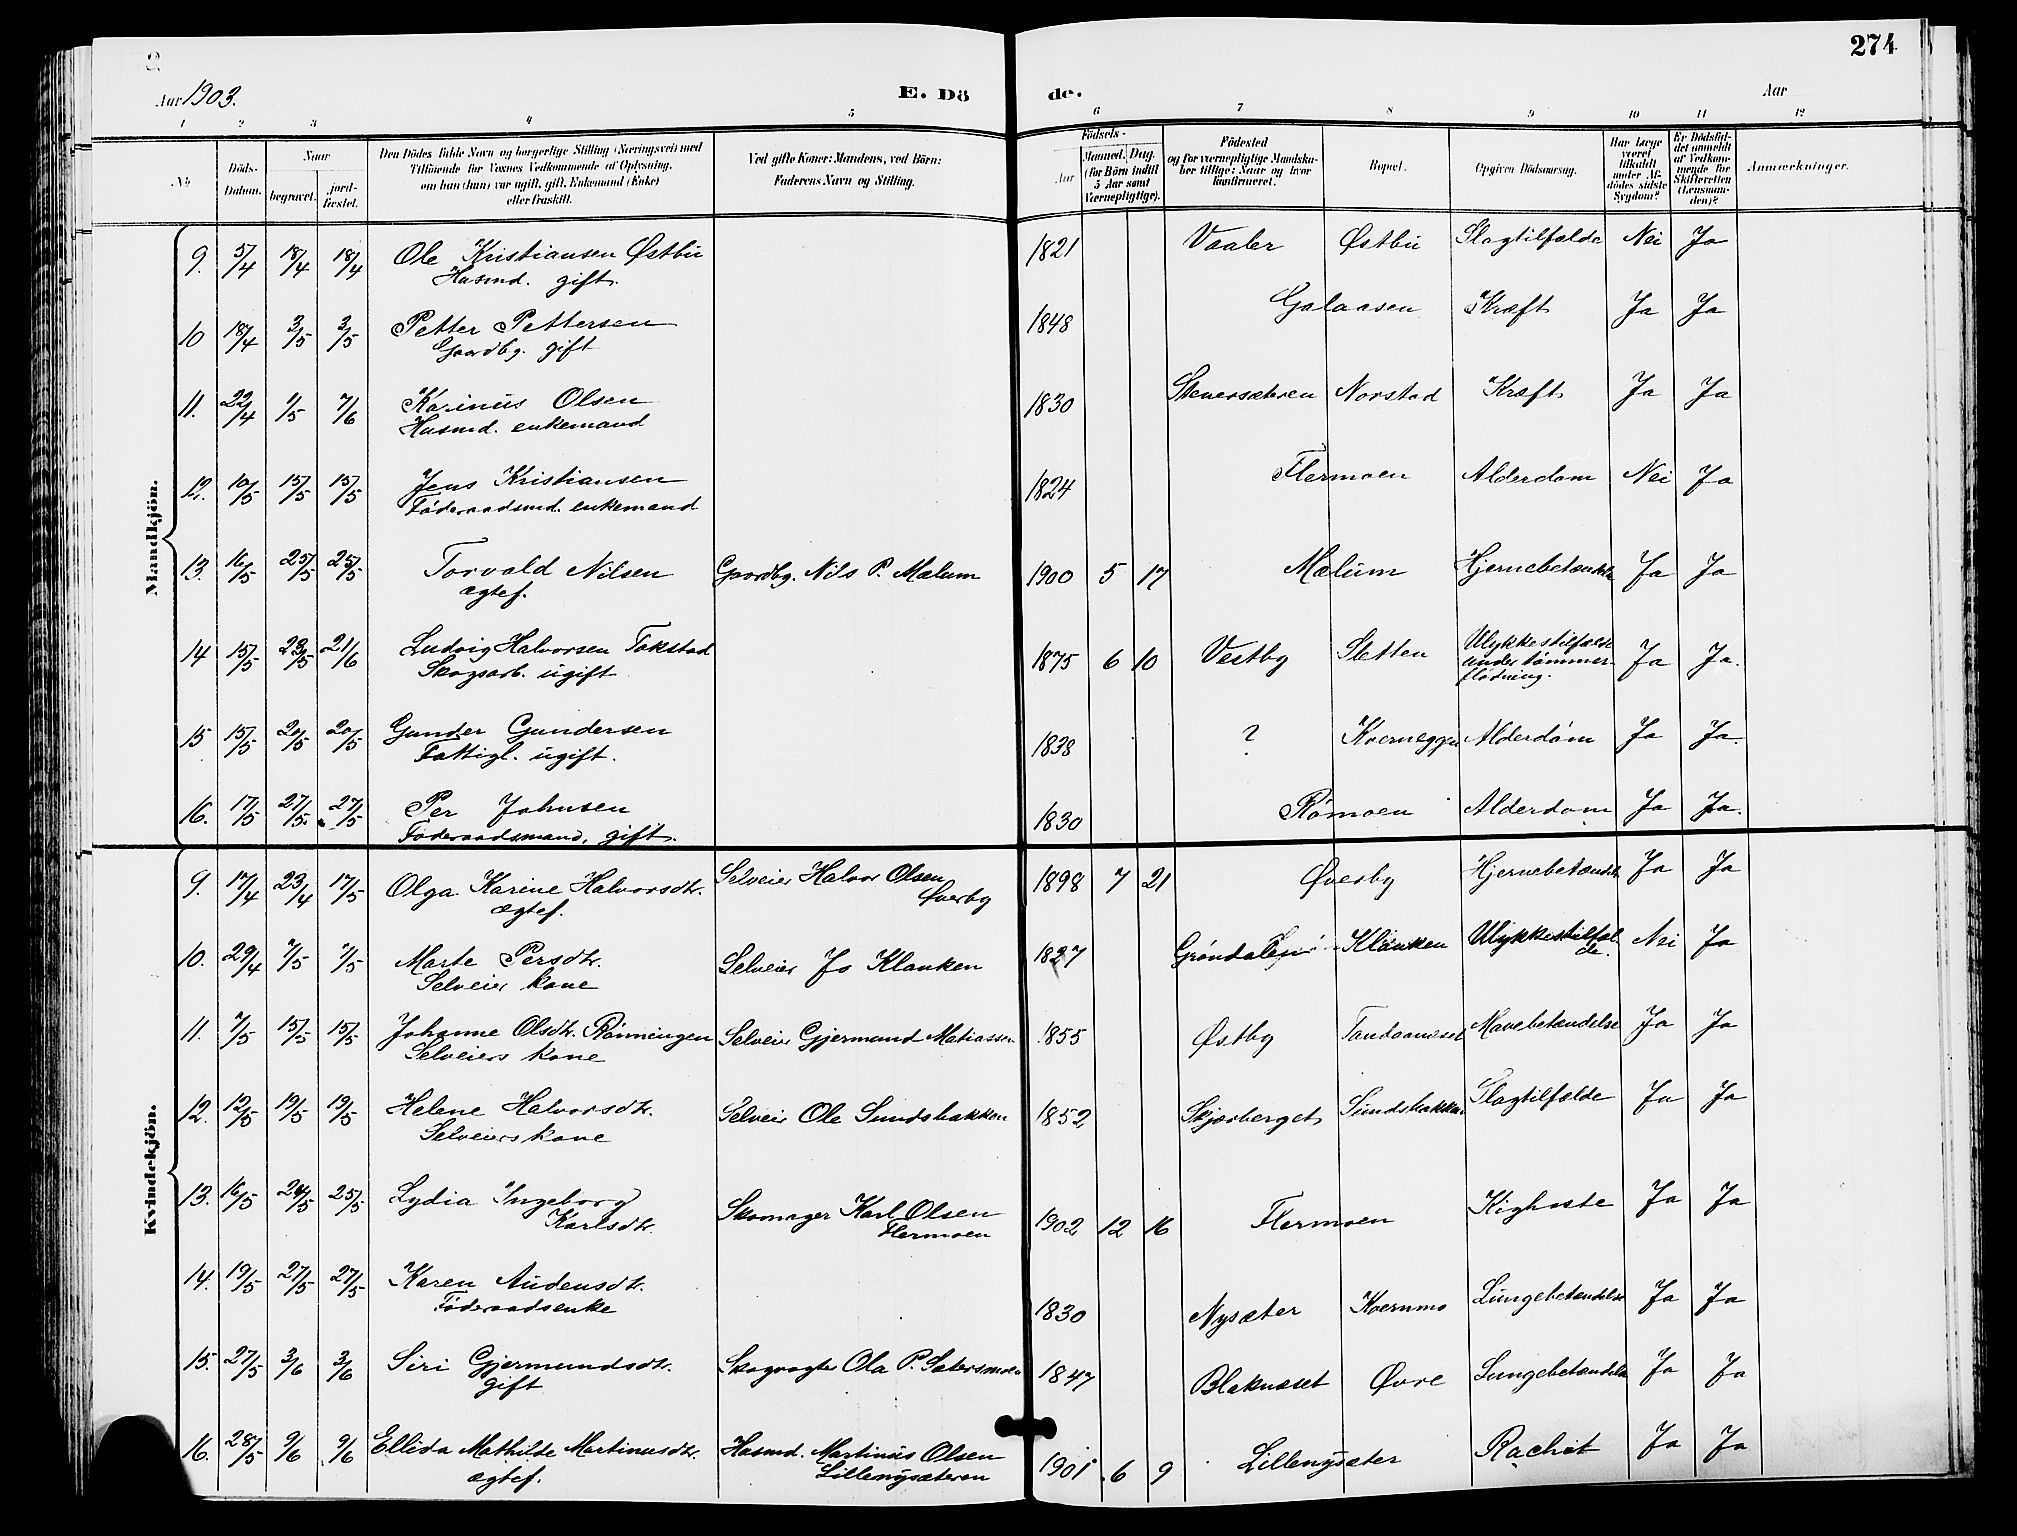 274
Aar 1903.
E. Dö de.
Aar
1 2 3 4 5 6 7 8 9 10 11 12
No
Döds-Datum.
Naar
begravet.
jord-fæstet.
Den Dödes fulde Navn og borgerlige Stilling (Næringsvei) med
Tilföiende for Voxnes Vedkommende af Oplysning,
om hun (han) var ugift, gift, Enkemand (Enke)
eller fraskilt.
Ved gifte Koner: Mandens, ved Börn:
Faderens Navn og Stilling.
Födsels-
Aar
Maaned. Dag.
(for Börn indtil
5 Aar samt
Værnepligtige).
Födested
og for værnepligtige Mandska-
ber tillige: Naar og hvor
konfirmeret.
Bopæl.
Opgiven Dödsaarsag.
Har Læge
været
tilkaldt
under Af-
dödes sidste
Sygdom?
Er Dödsfal-
det anmeldt
af Vedkom-
mende for
Skifteretten
(Lensman-
den)?
Anmærkninger.
Mandkjön.
9. 5/4 18/4 18/4 Ole Kristiansen Østbü 1821 Vaaler Østbü Slagtilfælde Nei Ja
Husmd. gift.
10 18/4 3/5 3/5 Petter Pettersen 1848 Galaasen Kræft Ja Ja
Gaardbg. gift
11. 22/4 1/5 7/6 Karinüs Olsen 1830 Norstad Kræft Ja Ja
Husmd. enkemand
12. 10/5 15/5 15/5 Jens Kristiansen 1824 Flermoen Alderdom Nei Ja
Føderaadsmd. enkemand
13. 16/5 25/5 25/5 Torvald Nilsen Gaardbg. Nils P. Mælum 1900 5 17 Mælüm Hjernebetændelse Ja Ja
ægtef.
14 15/5 23/5 21/6 Ludvig Halvorsen Takstad 1875 6 10 Vestby Sletten Ulykkestilfælde Ja Ja.
Skogsarb. ugift under tømmer-
flødning.
15 15/5 20/5 20/5 Gunder Gundersen 1838 ? Kverneggen Alderdom Ja Ja.
Fattigl. ugift.
16. 17/5 27/5 27/5 Per Johnsen 1830 Rømoen Alderdom Ja Ja.
Føderaadsmand, gift.
Kvindekjön.
9. 17/4 23/4 17/5 Olga Karine Halvorsdtr. Selveier Halvor Olsen 1898 7 21 Øverby Hjernebetændelse Ja Ja
ægtef. Øverby
10. 29/4 7/5 7/5 Marte Persdtr. Selveier Jo Klanken 1827 Grøndalen Klanken Ulykkestilfæl Nei Ja
Selveier kone de.
11. 7/5 15/5 15/5 Johanne Olsdtr. Rønningen Selveier Gjermund Matiassen 1855 Østby Tandaaneset Mavebetændelse Ja Ja
Selveiers kone
12. 12/5 19/5 19/5 Helene Halvorsdtr. Selveier Ole Sundsbakken 1852 Skjærberget Sundsbakken Slagtilfælde Ja Ja
Selveiers kone
13. 16/5 24/5 25/5 Lydia Ingeborg Skomager Karl Olsen 1902 12 16 Flermoen Kighoste Ja Ja
Karlsdtr. Flermoen
14. 19/5 27/5 27/5 Karen Audensdtr. 1830 Nysæter Kvernmo Lungebetændelse Ja Ja
Føderaadsenke
15. 27/5 3/6 3/6 Siri Gjermundsdtr. Skogvogter Ola P. Sætersmoen 1847 Blaknæset Øvre Lungebetændelse Ja Ja
gift
16. 28/5 9/6 9/6 Ellida Mathilde Martinusdtr. Husmd. Martinüs Olsen 1901 6 9 Lillenysæter Rachit Ja Ja
ægtef. Lillenysæteren